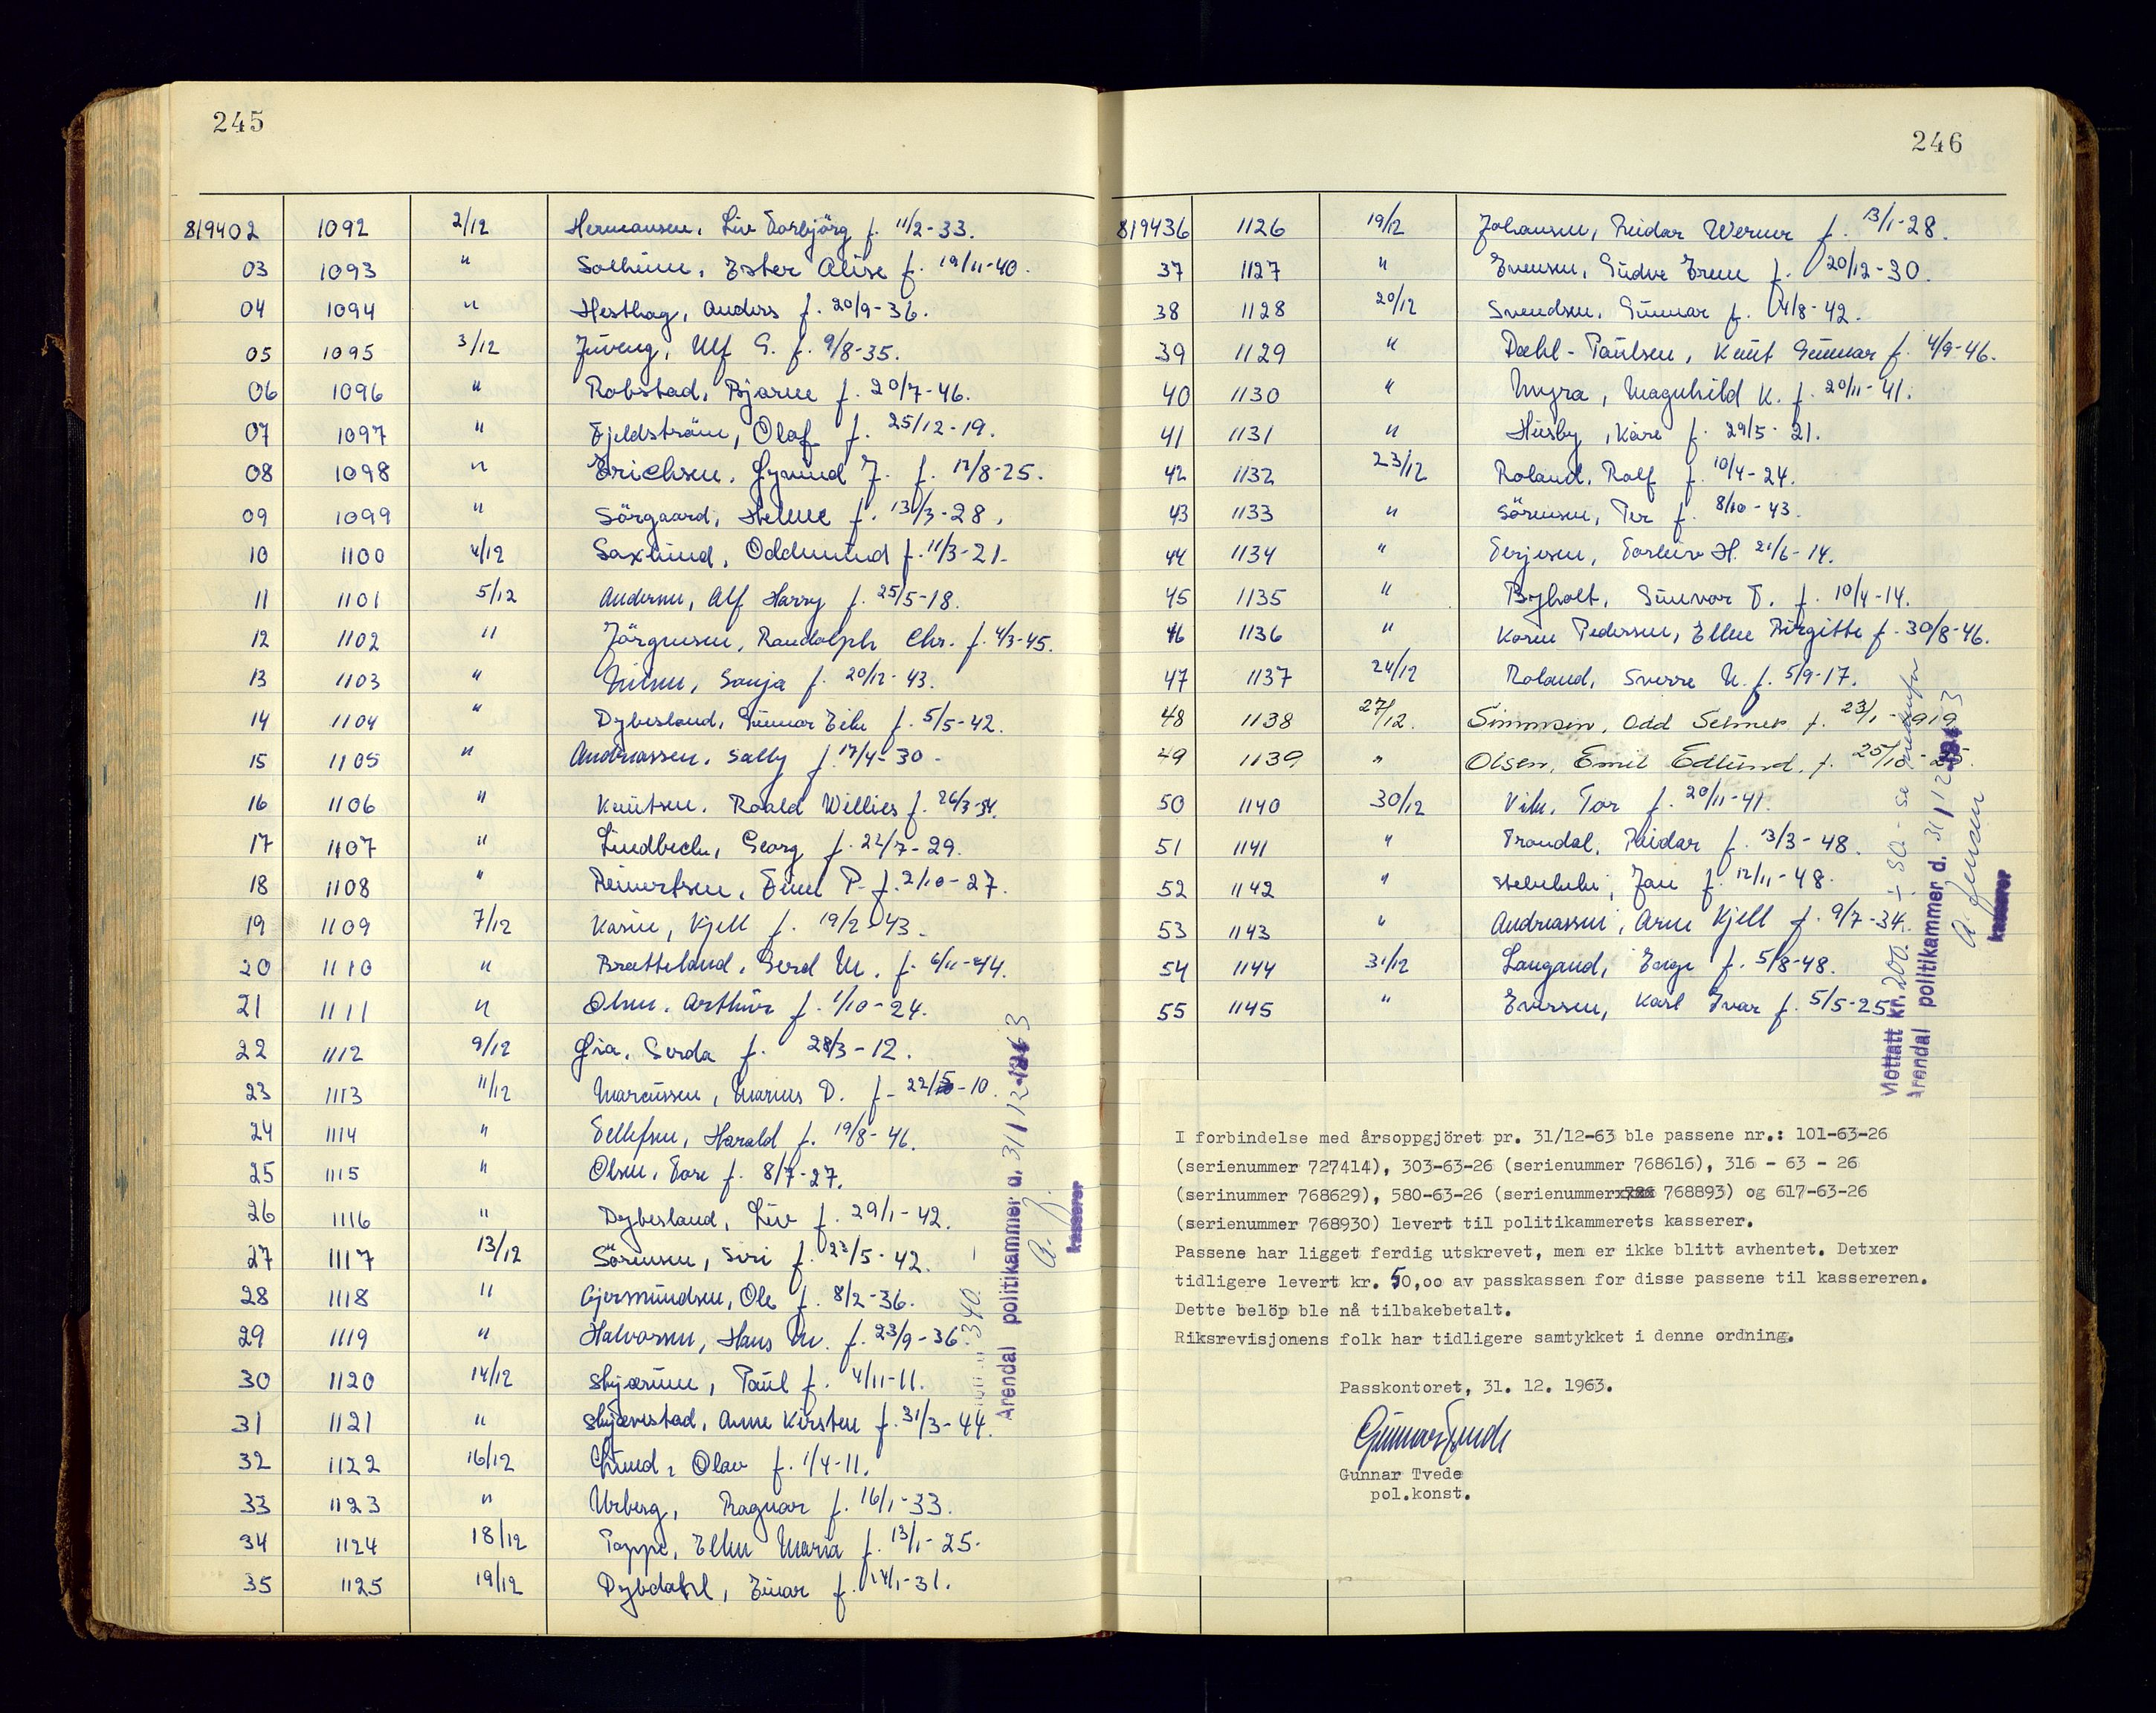 245
819402 1092 2/12 Hermansen, Liv Torbjörg f. 11/2-33.
03 1093 " Solheim, Ester Alise f. 19/11-40.
04 1094 " Hesthag, Anders f. 20/9-36.
05 1095 3/12 Juveng, Ulf G. f. 9/8-35.
06 1096 " Robstad, Bjarne f. 20/7-46.
07 1097 " Fjeldström, Olaf f. 25/12-19.
08 1098 " Erichsen, J. f. 12/8-25.
09 1099 " Sörgaard, Helene f. 13/3-28.
10 1100 4/12 Saxlund, Oddmund f. 11/3-21.
11 1101 5/12 Andersen, Alf Harry f. 25/5-18.
12 1102 " Jörgensen, Randolph Chr. f. 4/3-45.
13 1103 " Nilsen, Sonja f. 20/12-43.
14 1104 " Dybesland, Gunnar Eik f. 5/5-42.
15 1105 " Andreassen, Sally f. 17/4-30.
16 1106 " Knutsen, Roald Willies f. 26/3-34.
17 1107 " Lindbeck, Georg f. 22/7-29.
18 1108 " Reinertsen, Finn P. f. 2/10-27.
19 1109 7/12 Kasin, Kjell f. 19/2-43.
20 1110 " Bratteland, Gerd M. f. 6/11-44.
21 1111 " Olsen, Arthur f. 1/10-24.
22 1112 9/12 Gerda f. 28/3-12.
23 1113 11/12 Marcussen, Marius D. f. 22/5-10.
24 1114 " Tellefsen, Harald f. 19/8-46.
25 1115 " Olsen, Tore f. 8/7-27.
26 1116 " Dybesland, Liv f. 29/1-42.
27 1117 13/12 Sörensen, Siri f. 23/5-42.
28 1118 " Gjermundsen, Ole f. 8/2-36.
29 1119 " Halvorsen, Hans M. f. 23/9-36.
30 1120 14/12 Skjærum, Paul f. 4/11-11.
31 1121 " Skjævestad, Anne Kirsten f. 31/3-44.
32 1122 16/12 Lund, Olav f. 1/4-11.
33 1123 " Urberg, Ragnar f. 16/1-33.
34 1124 18/12 Poppe, Ellen Maria f. 13/1-25.
35 1125 19/12 Dybdahl, Einar f. 14/1-31.
340
Arendal politikammer d. 31/12 1963
A. J.
kasserer
246
819436 1126 19/12 Johansen, Reidar Werner f. 13/1-28.
37 1127 " Evensen, Gudve Irene f. 20/12-30.
38 1128 20/12 Svendsen, Gunnar f. 14/8-42.
39 1129 " Dæhl-Paulsen, Knut Gunnar f. 4/9-46.
40 1130 " Myra, Magnhild K. f. 20/11-41.
41 1131 " Husby, Kåre f. 29/5-21.
42 1132 23/12 Roland, Rolf f. 10/4-24.
43 1133 " Sörensen, Per f. 8/10-43.
44 1134 " Terjesen, Torleiv H. 21/6-14.
45 1135 " Byholt, Gunvor T. f. 10/4-14.
46 1136 " Karen Pedersen, Ellen Birgitte f. 30/8-46.
47 1137 24/12 Roland, Sverre N. f. 5/9-17.
48 1138 27/12. Simonsen, Odd Selmer f. 23/1-1919
49 1139 " Olsen, Emil Edlund, f. 25/10-25.
50 1140 30/12 Vik, Tor f. 20/11-41.
51 1141 " Trondal, Reidar f. 13/3-48.
52 1142 " Jan f. 12/11-48.
53 1143 " Andreassen, Arne Kjell f. 9/7-34.
54 1144 31/12 Langand, f. 5/8-48.
55 1145 " Eversen, Karl Ivar f. 5/5-25
Mottatt kr. 200. ÷ 50 - se nedenfor
Arendal politikammer d. 31/12 1963
A. Jensen
kasserer
I forbindelse med årsoppgjöret pr. 31/12-63 ble passene nr.: 101-63-26
(serienummer 727414), 303-63-26 (serienummer 768616), 316 - 63 - 26
(serinummer 768629), 580-63-26 (serienummerxxxx 768893) og 617-63-26
(serienummer 768930) levert til politikammerets kasserer.
Passene har ligget ferdig utskrevet, men er ikke blitt avhentet. Detxer
tidligere levert kr. 50,oo av passkassen for disse passene til kassereren.
Dette belöp ble nå tilbakebetalt.
Riksrevisjonens folk har tidligere samtykket i denne ordning.
Passkontoret, 31. 12. 1963.
Gunnar Tvede
Gunnar Tvede
pol.konst.